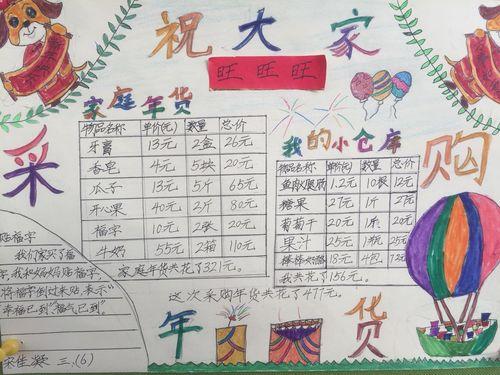 祝大家
旺旺旺
采购年货
家庭年货
物品名称 单价(元) 数量 总价
牙膏 13元 2盒 26元
香皂 4元 5块 20元
瓜子 13元 5斤 65元
开心果 40元 2斤 80元
福字 10元 2张 20元
牛奶 55元 2箱 110元
家庭年货共花了321元。
我的小仓库
物品名称 单价(元) 数量 总价
1.2元 10根 12元
糖果 27元 1斤 27元
葡萄干 20元 1斤 20元
果汁 25元 1瓶 25元
18元 4包 72元
我共花了156元。
这次采购年货共花了477元。
贴福字
我们家买了福
字,我和妈妈贴福字,
将福字倒过来贴,表示“
幸福已到”“福气已到”。
三.(6)